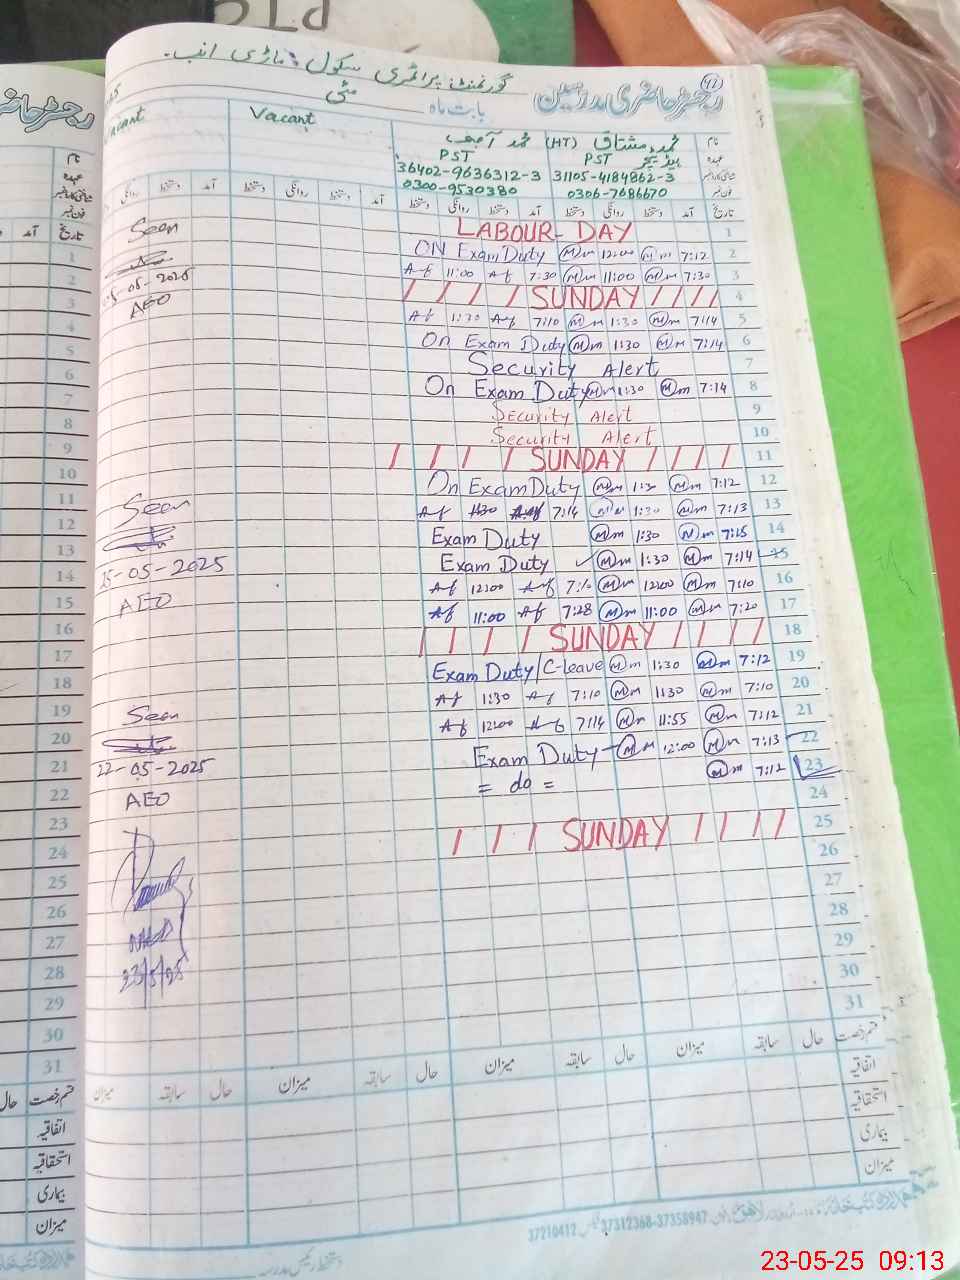 گورنمنٹ پرائمری سکول ماڑی انب۔
41
رجسٹر حاضری مدرسین
بابت ماہ مئی
Vacant
Vacant
محمد آصف
محمد مشتاق (HT)
نام
PST
PST ہیڈ ٹیچر
عہدہ
36402-9636312-3
31105-4184862-3
شناختی کارڈ نمبر
0300-9530380
0306-7686670
فون نمبر
تاریخ آمد دستخط روانگی دستخط آمد دستخط روانگی دستخط
1 LABOUR DAY
ON Exam Duty Mm 12:00 Mm 7:12 2
Af 11:00 Af 7:30 Mm 11:00 Mm 7:30 3
/ / / / SUNDAY / / / / 4
Af 1:30 Af 7:10 Mm 1:30 Mm 7:14 5
On Exam Duty Mm 1:30 Mm 7:14 6
Security Alert 7
On Exam Duty Mm 1:30 Mm 7:14 8
Security Alert 9
Security Alert 10
/ / / / SUNDAY / / / / 11
On Exam Duty Mm 1:30 Mm 7:12 12
Af 1:30 Af 7:14 Mm 1:30 Mm 7:13 13
Exam Duty Mm 1:30 Mm 7:15 14
Exam Duty Mm 1:30 Mm 7:14 15
Af 12:00 Af 7:10 Mm 12:00 Mm 7:10 16
Af 11:00 Af 7:28 Mm 11:00 Mm 7:20 17
/ / / / SUNDAY / / / / 18
Exam Duty/C-leave Mm 1:30 Mm 7:12 19
Af 1:30 Af 7:10 Mm 1:30 Mm 7:10 20
Af 12:00 Af 7:14 Mm 11:55 Mm 7:12 21
Exam Duty Mm 12:00 Mm 7:13 22
= do = Mm 7:12 23
24
/ / / SUNDAY / / / / 25
26
27
28
29
30
31
Seen
05-2025
AEO
Seen
15-05-2025
AEO
Seen
22-05-2025
AEO
23/5/25
قسم رخصت حال سابقہ میزان حال سابقہ میزان حال سابقہ میزان حال سابقہ میزان
اتفاقیہ
استحقاقیہ
بیماری
میزان
37312368-37358947
37210412
دستخط رئیس مدرسہ
رجسٹر حاضر
نام
عہدہ
شناختی کارڈ نمبر
فون نمبر
تاریخ آمد
1
2
3
4
5
6
7
8
9
10
11
12
13
14
15
16
17
18
19
20
21
22
23
24
25
26
27
28
29
30
31
قسم رخصت حال
اتفاقیہ
استحقاقیہ
بیماری
میزان
23-05-25 09:13